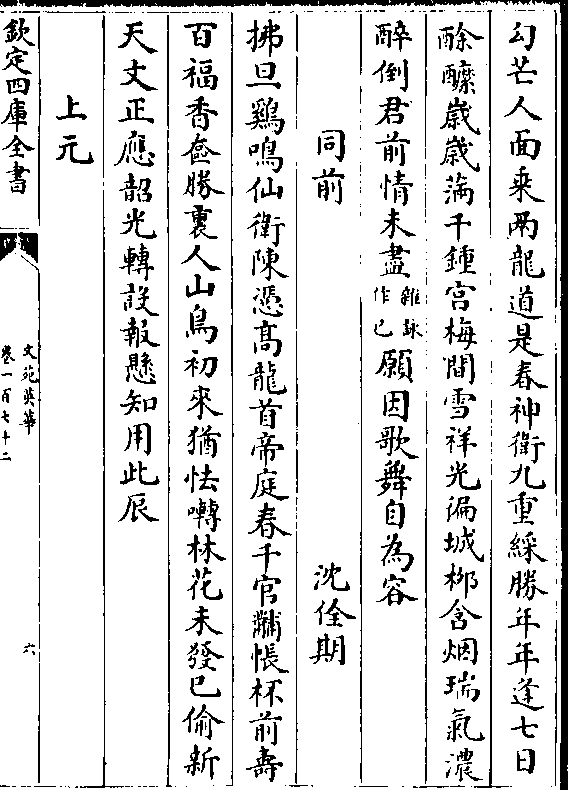 勾芒人面乘兩龍道是春神衛九重綵勝年年逢七日
酴醿歲歲滿千鍾宫梅間雪祥光徧城栁含烟瑞氣濃
醉倒君前情未盡雜詠作已願因歌舞自為容
同前 沈佺期
拂旦鷄鳴仙衛陳憑髙龍首帝庭春千官黼帳杯前壽
百福香奩勝裏人山鳥初來猶怯囀林花未發已偷新
天文正應韶光轉設報懸知用此辰
上元
欽定四庫全書
文苑英華
卷一百七十二
六